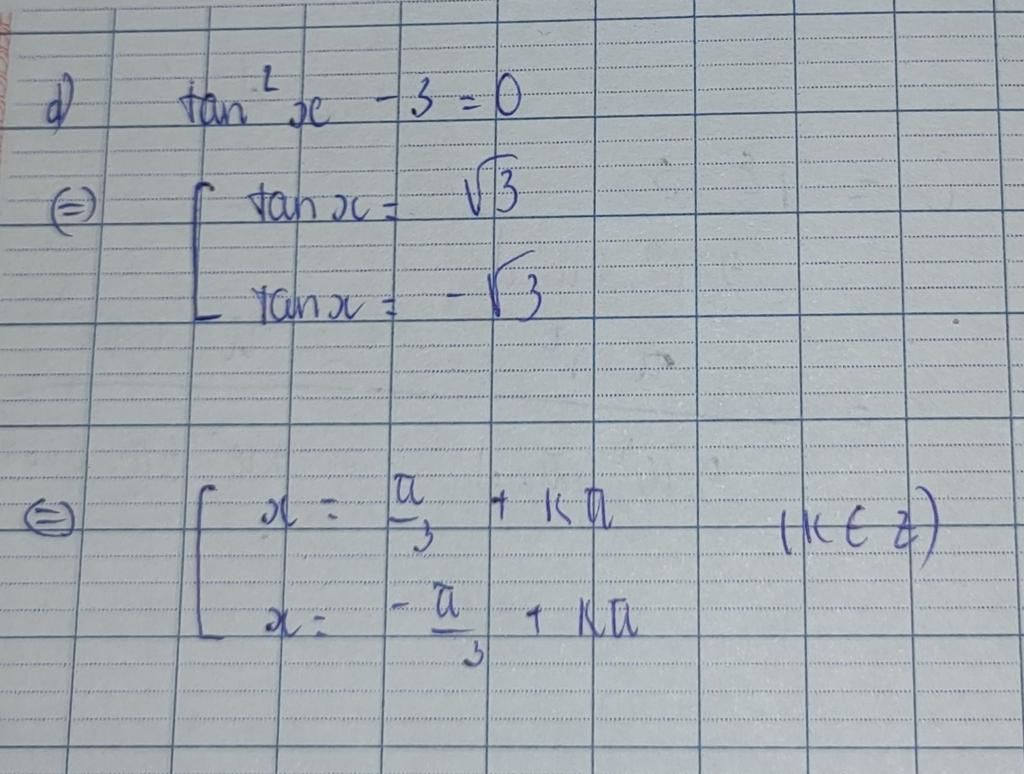 d) tan²x - 3 = 0
(=) [ tan x = √3
tan x = -√3
(=) [ x = π/3 + kπ (k ∈ Z)
x = -π/3 + kπ